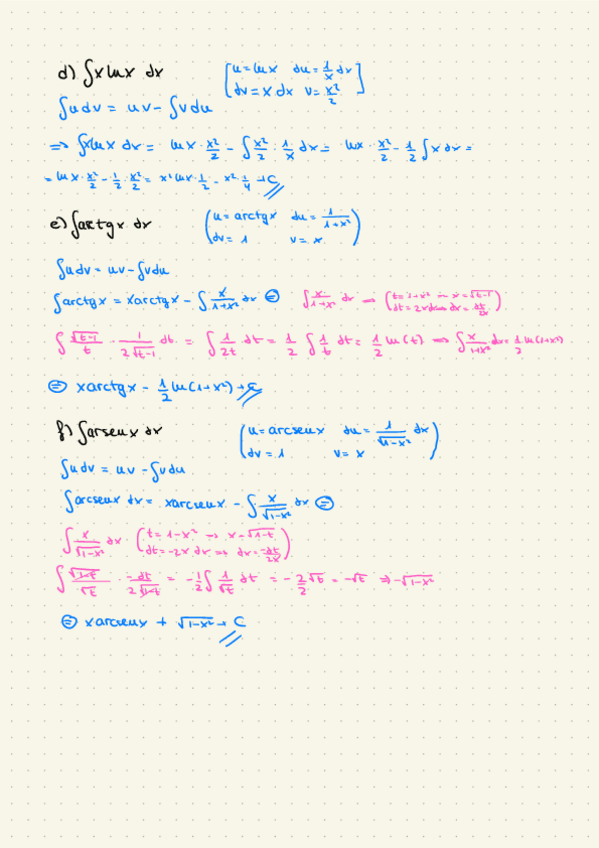 d) ∫x lnx dx [u = lnx du = 1/x dx
dv = x dx v = x²/2]
∫u dv = uv - ∫v du
=> ∫x lnx dx = lnx · x²/2 - ∫x²/2 · 1/x dx = lnx · x²/2 - 1/2 ∫x dx =
= lnx · x²/2 - 1/2 · x²/2 = x² lnx · 1/2 - x² · 1/4 + C
e) ∫arctgx dx (u = arctgx du = 1/(1+x²)
dv = 1 v = x)
∫u dv = uv - ∫v du
∫arctgx = xarctgx - ∫x/(1+x²) dx ⊜ ∫x/(1+x²) dx → (t = 1+x² → x = √(t-1)
dt = 2x dx → dx = dt/2x)
∫√(t-1)/t · 1/(2√(t-1)) dt = ∫1/2t dt = 1/2 ∫1/t dt = 1/2 ln(t) => ∫x/(1+x²) dx = 1/2 ln(1+x²)
⊜ xarctgx - 1/2 ln(1+x²) + C
f) ∫arsenx dx (u = arcsenx du = 1/√(1-x²) dx
dv = 1 v = x)
∫u dv = uv - ∫v du
∫arcsenx dx = xarcsenx - ∫x/√(1-x²) dx ⊜
∫x/√(1-x²) dx (t = 1-x² → x = √(1-t)
dt = -2x dx → dx = -dt/2x)
∫√(1-t)/√t · -dt/2√(1-t) = -1/2 ∫1/√t dt = -2/2 √t = -√t => -√(1-x²)
⊜ xarcsenx + √(1-x²) + C